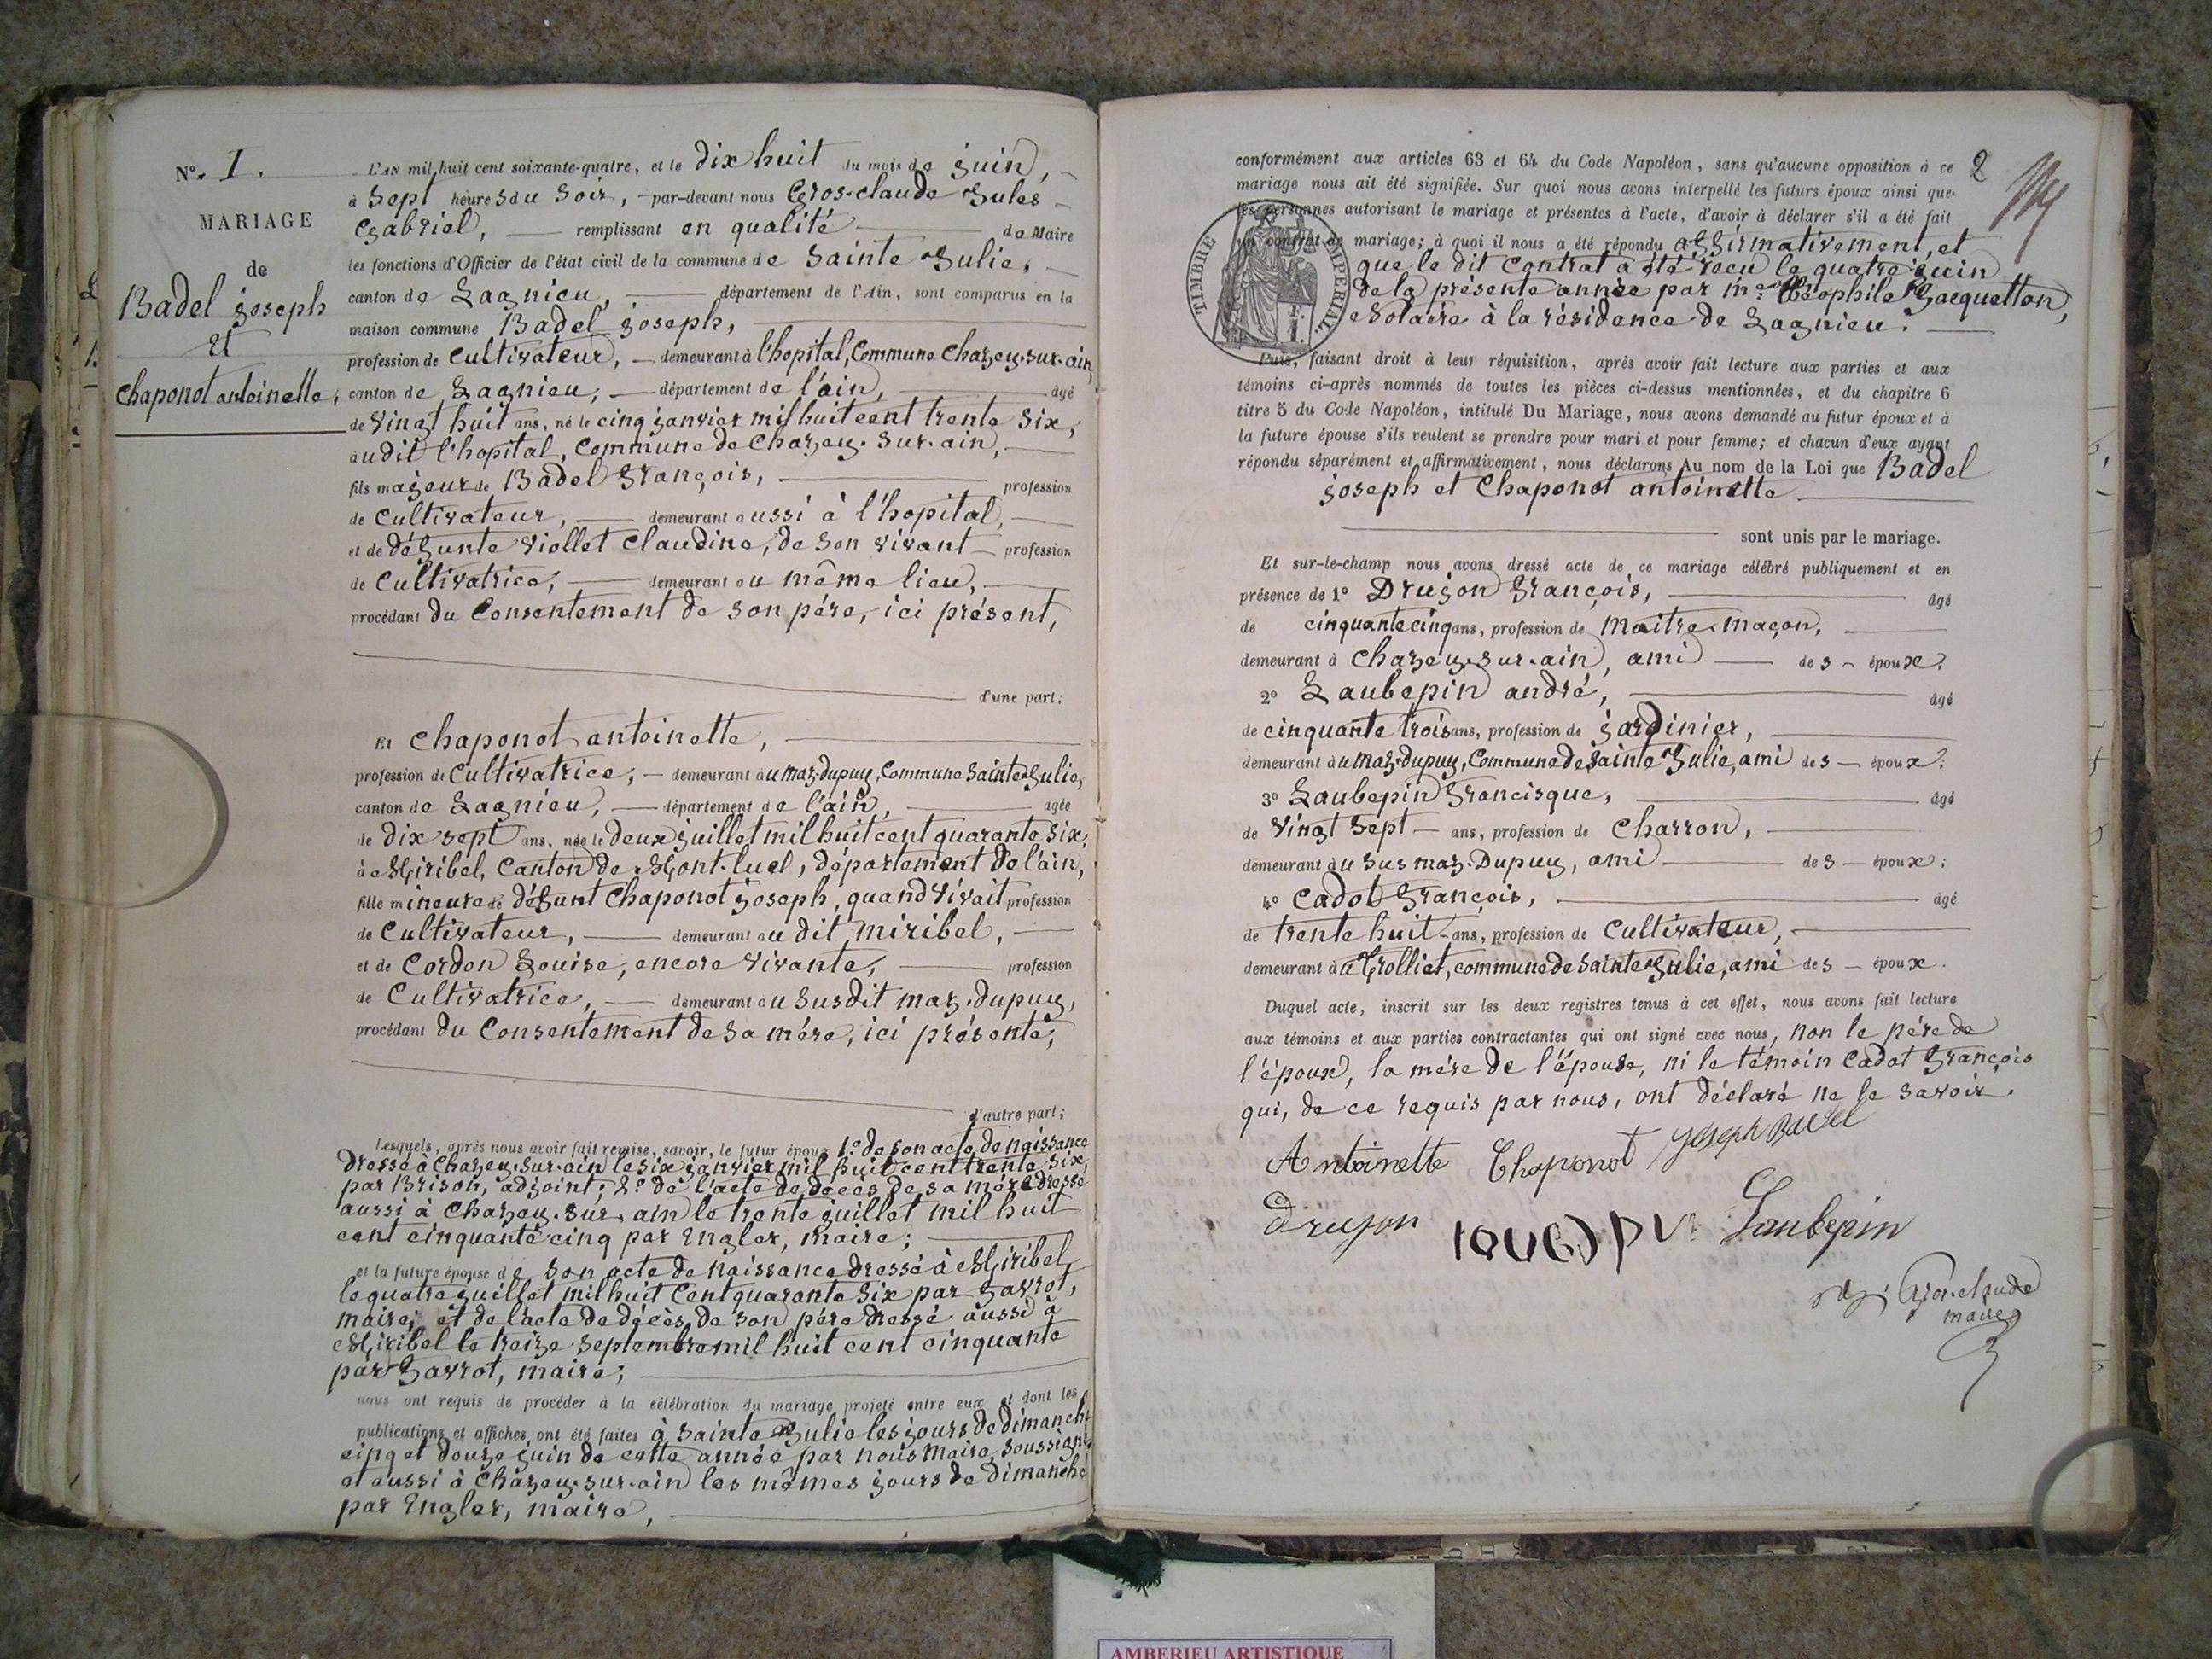 N°. 1.
MARIAGE
de
Badel joseph
Et
Chaponot antoinette,
L'AN mil huit cent soixante-quatre, et le dix huit du mois de juin,
à Sept heures du Soir, par-devant nous Gros-claude Jules
Gabriel, remplissant en qualité de Maire
les fonctions d'Officier de l'état civil de la commune de Sainte Julie,
canton de Lagnieu, département de l'Ain, sont comparus en la
maison commune Badel joseph,
profession de Cultivateur, demeurant à l'hopital, Commune Chazey-sur-ain,
canton de Lagnieu, département de l'ain, âgé
de vingt huit ans, né le cinq janvier mil huit cent trente six,
audit l'hopital, Commune de Chazey-sur-ain,
fils majeur de Badel François, profession
de Cultivateur, demeurant aussi à l'hopital,
et de défunte Viollet Claudine, de son vivant profession
de Cultivatrice, demeurant au même lieu,
procédant du Consentement de son père, ici présent,
d'une part;
Et Chaponot antoinette,
profession de Cultivatrice, demeurant au maz-dupuy, Commune Sainte Julie,
canton de Lagnieu, département de l'ain, âgée
de dix sept ans, née le deux juillet mil huit cent quarante six,
à Miribel, Canton de Mont-luel, département de l'ain,
fille mineure de défunt Chaponot joseph, quand vivait profession
de Cultivateur, demeurant au dit miribel,
et de Cordon Louise, encore vivante, profession
de Cultivatrice, demeurant au susdit maz-dupuy,
procédant du Consentement de sa mère, ici présente,
d'autre part;
Lesquels, après nous avoir fait remise, savoir, le futur époux 1° de son acte de naissance
dressé à Chazey-sur-ain le six janvier mil huit cent trente six,
par Brison, adjoint; 2° de l'acte de décès de sa mère dressé
aussi à Chazey-sur-ain le trente juillet mil huit
cent cinquante cinq par Engler, maire;
et la future épouse de son acte de naissance dressé à Miribel
le quatre juillet mil huit Cent quarante six par Savrot,
maire; et de l'acte de décès de son père dressé aussi à
Miribel le treize septembre mil huit cent cinquante
par Savrot, maire;
nous ont requis de procéder à la célébration du mariage projeté entre eux et dont les
publications et affiches ont été faites à Sainte Julie les jours de dimanche
cinq et douze juin de cette année par nous Maire, soussigné
et aussi à Chazey-sur-ain les mêmes jours de dimanche
par Engler, maire,
2
conformément aux articles 63 et 64 du Code Napoléon, sans qu'aucune opposition à ce
mariage nous ait été signifiée. Sur quoi nous avons interpellé les futurs époux ainsi que
les personnes autorisant le mariage et présentes à l'acte, d'avoir à déclarer s'il a été fait
un contrat de mariage; à quoi il nous a été répondu affirmativement, et
que le dit Contrat a été reçu le quatre juin
de la présente année par me Théophile Jacquetton,
Notaire à la résidence de Lagnieu.
TIMBRE IMPERIAL.
Puis, faisant droit à leur réquisition, après avoir fait lecture aux parties et aux
témoins ci-après nommés de toutes les pièces ci-dessus mentionnées, et du chapitre 6
titre 5 du Code Napoléon, intitulé Du Mariage, nous avons demandé au futur époux et à
la future épouse s'ils veulent se prendre pour mari et pour femme; et chacun d'eux ayant
répondu séparément et affirmativement, nous déclarons Au nom de la Loi que Badel
joseph et Chaponot antoinette
sont unis par le mariage.
Et sur-le-champ nous avons dressé acte de ce mariage célébré publiquement et en
présence de 1° Drujon François, âgé
de cinquante cinq ans, profession de Maître-maçon,
demeurant à Chazey-sur-ain, ami des époux;
2° Laubepin andré, âgé
de cinquante trois ans, profession de jardinier,
demeurant au maz-dupuy, Commune de Sainte Julie, ami des époux;
3° Laubepin Francisque, âgé
de Vingt Sept ans, profession de Charron,
demeurant au sus maz-Dupuy, ami des époux;
4° Cadot François, âgé
de trente huit ans, profession de Cultivateur,
demeurant à Trolliet, commune de Sainte Julie, ami des époux.
Duquel acte, inscrit sur les deux registres tenus à cet effet, nous avons fait lecture
aux témoins et aux parties contractantes qui ont signé avec nous, non le père de
l'époux, la mère de l'épouse, ni le témoin Cadot François
qui, de ce requis par nous, ont déclaré ne le savoir.
Antoinette Chaponot Joseph Badel
Drujon Laubepin
Gros-claude
maire
AMBERIEU ARTISTIQUE